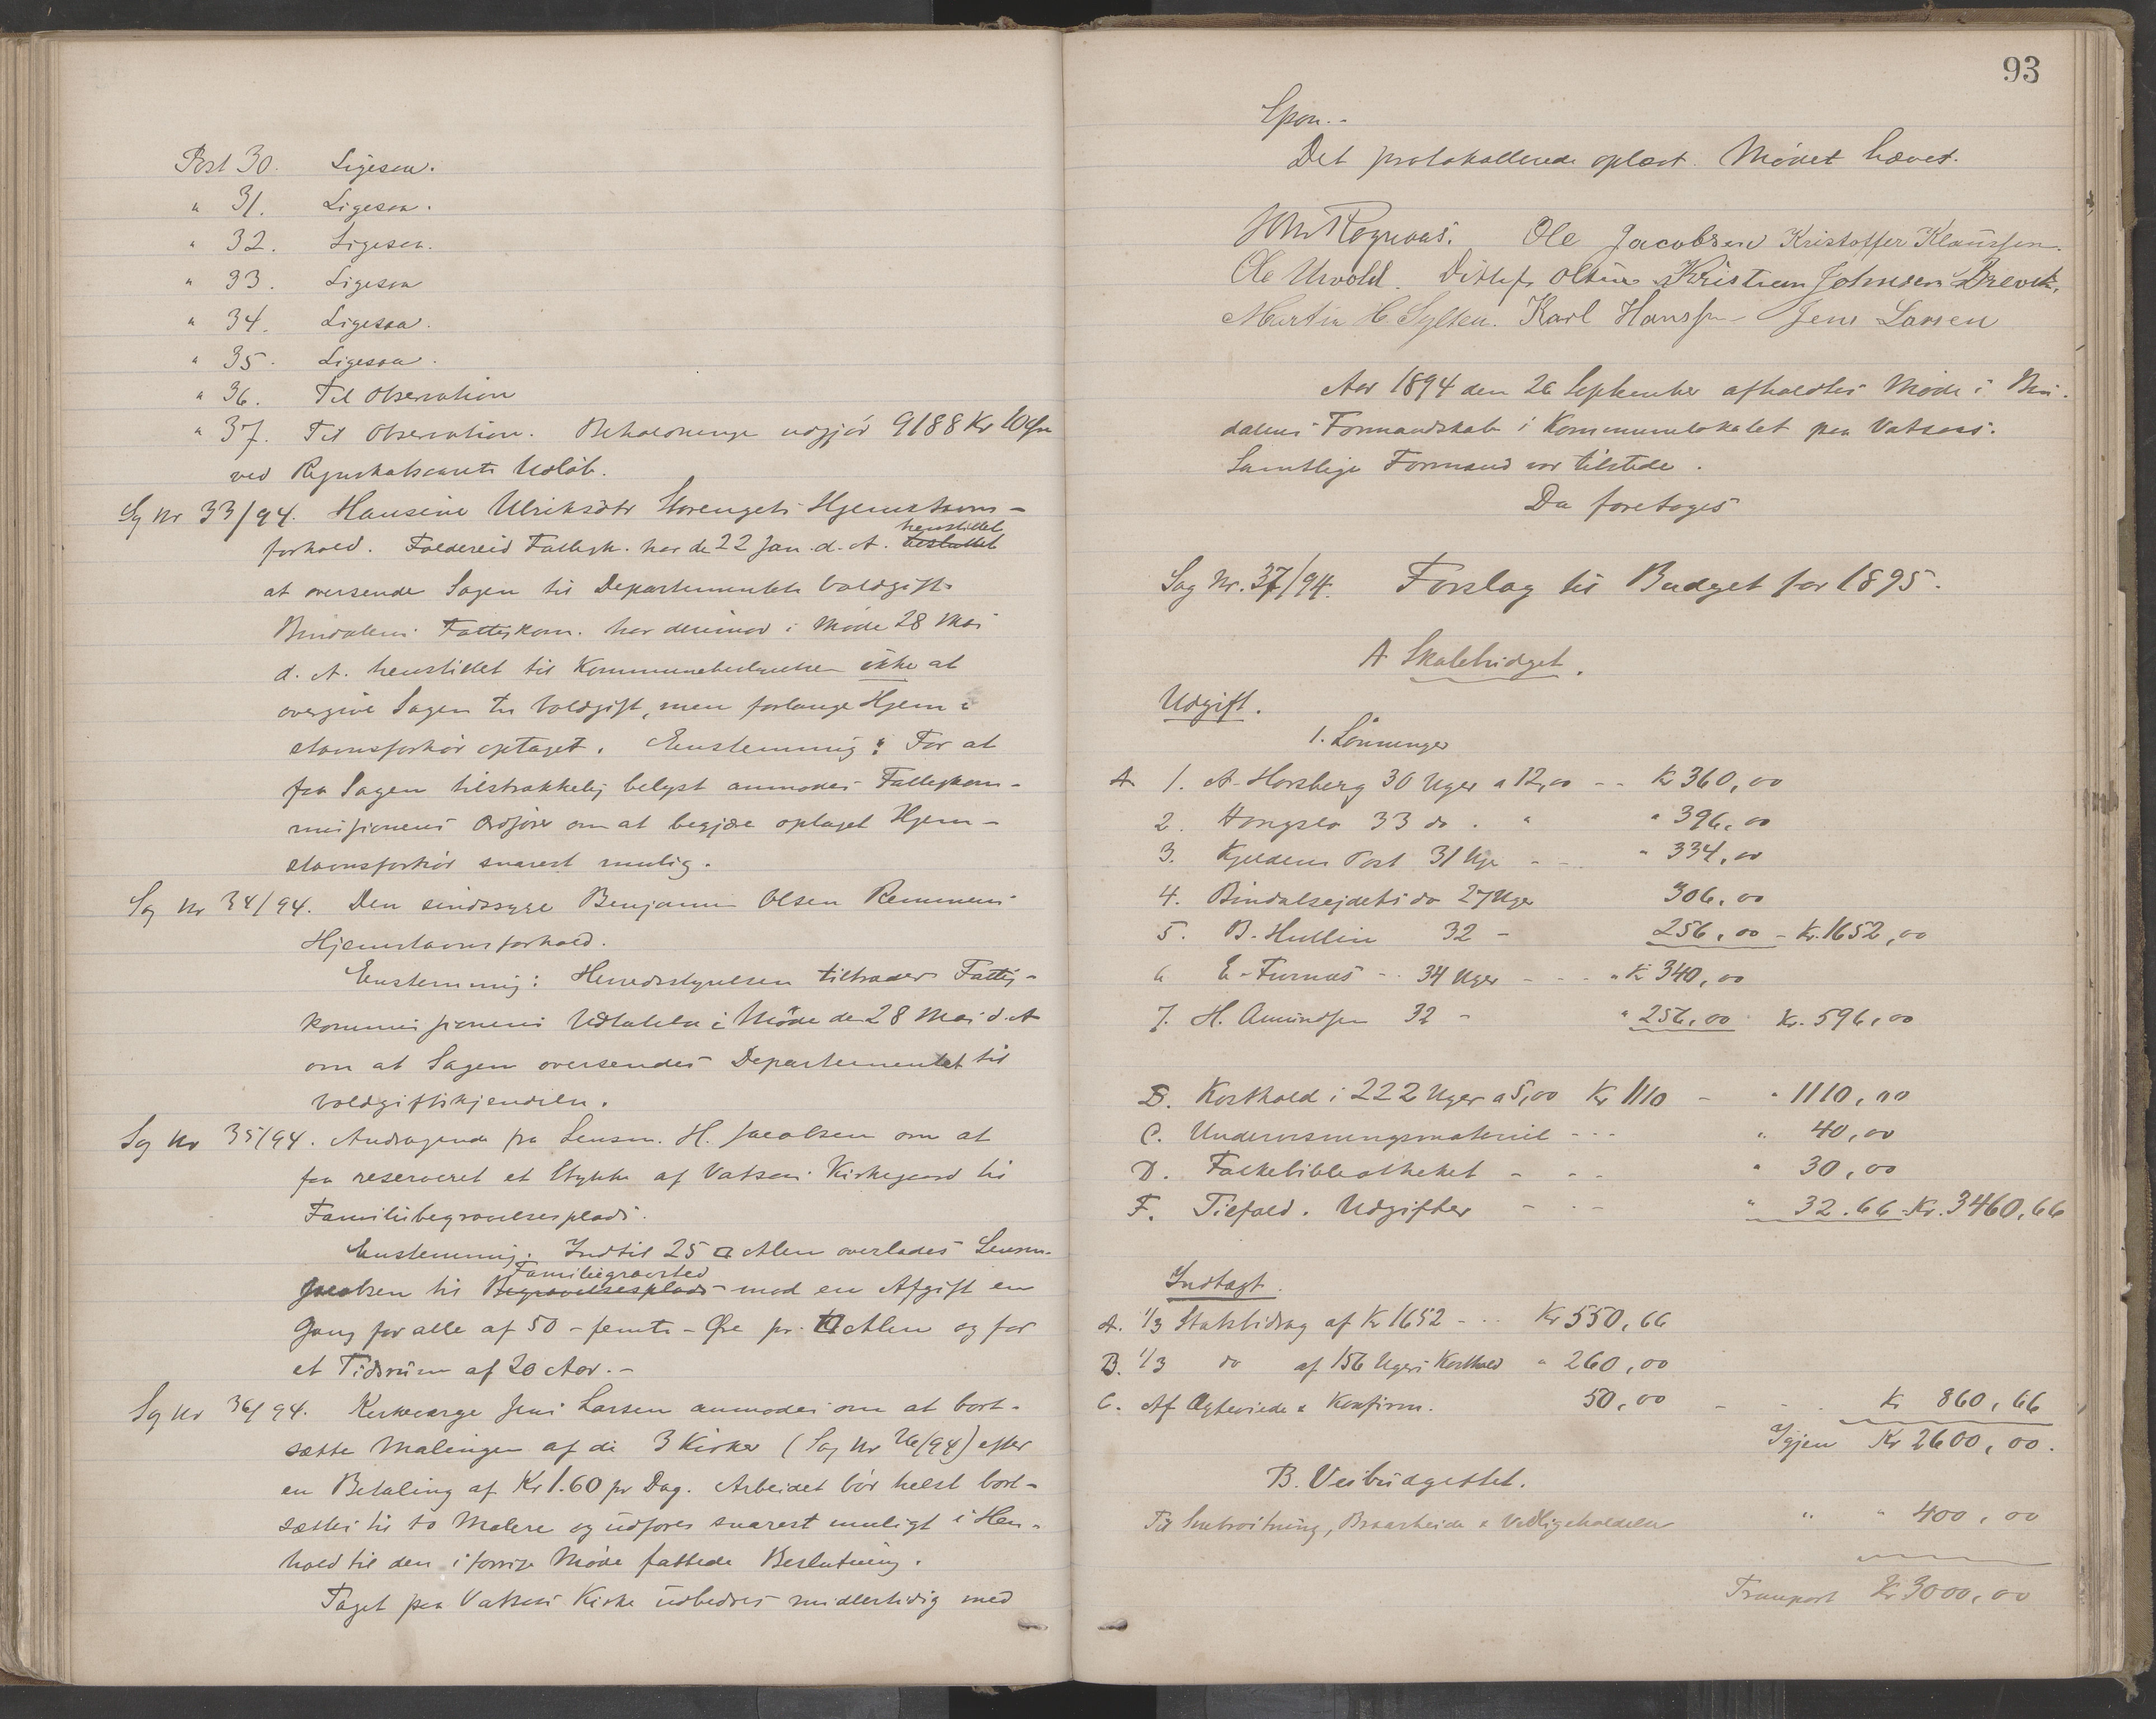 Post 30. Ligesaa.
" 31. Ligesaa.
" 32. Ligesaa.
" 33. Ligesaa
" 34. Ligesaa.
" 35. Ligesaa.
" 36. Til Observation
" 37. Til Observation. Beholdninge udgjør 9188 Kr 10 Øre
ved Regnskabsaarets Udløb.
Sag Nr 33/94. Hansine Ulriksdtr Horengets Hjemstavns-
forhold. Foldereid Fattigk. har de 22 Jan. d. A. henstillet
at oversende Sagen til Departementets Voldgift.
Bindalens Fattigkom. har derimod i Møde 28 Mai
d. A. henstillet til Kommunebestyrelsen ikke at
overgive Sagen til Voldgift, men forlange Hjem-
stavnsforhør optaget. Enstemmig: For at
faa Sagen tilstrækkelig belyst anmodes Fattigkom-
missionens Ordfører om at begjære optaget Hjem-
stavnsforhør snarest mulig.
Sag Nr 34/94. Den sindssyge Benjamin Olsen Remmens
Hjemstavnsforhold.
Enstemmig: Herredsstyrelsen tiltræder Fattig-
kommissionens Udtalelse i Møde de 28 Mai d. A
om at Sagen oversendes Departementet til
Voldgiftskjendelse.
Sag Nr 35/94. Andragende fra Lensm. H. Jacobsen om at
faa reserveret et Stykke af Vatsaas Kirkegaard til
Familiebegravelsesplads.
Enstemmig: Indtil 25 □ Alen overlades Lensm.
Jacobsen til Begravelsesplads Familiegravsted mod en Afgift en
Gang for alle af 50 - femti - Øre pr. □ Alen og for
et Tidsrum af 20 Aar. -
Sag Nr 36/94. Kirkeværge Jens Larsen anmodes om at bort-
sætte Malingen af de 3 Kirker (Sag Nr 26/94) efter
en Betaling af Kr 1.60 pr Dag. Arbeidet bør helst bort-
sættes til to Malere og udføres snarest muligt i Hen-
hold til den i forrige Møde fattede Beslutning.
Taget paa Vatsaas Kirke udbedres midlertidig med
93
Spon.-
Det protokollerede oplæst. Mødet hævet.
Ole Jacobsen Kristoffer Klaussen.
Ole Urvold. Ditlef Olsen Kristian Johnsen Brevik.
Martin H. Sylten. Karl Hanssen Jens Larsen
Aar 1894 den 26 September afholdtes Møde i Bin-
dalens Formandskab i Kommunelokalet paa Vatsaas.
Samtlige Formænd var tilstede.
Da foretoges
Sag Nr. 37/94. Forslag til Budget for 1895.
A Skolebudget.
Udgift.
1. Lønninger
A. 1. A. Horsberg 30 Uger a 12,00 -- Kr 360,00
2. Hongslo 33 do. " " 396,00
3. Kjeldens Post 31 Uge - - " 334,00
4. Bindalsejdets do 27 Uger 306,00
5. B. Hullin 32 - 256,00 - Kr. 1652,00
6 E. Furnæs - - 34 Uger - - - " Kr 340,00
7. H. Amundsen 32 - " 256,00 Kr. 596,00
B. Kosthold i 222 Uger a 5,00 Kr 1110 - " 1110,00
C. Undervisningsmateriel - - - " 40,00
D. Folkebibliotheket - - - " 30,00
F. Tilfæld. Udgifter - - - " 32.66 - Kr. 3460,66
Indtægt.
A. 1/3 Statsbidrag af Kr 1652 - - Kr 550,66
B. 1/3 do af 156 Ugers Kosthold " 260,00
C. Af Ægteviede & Konfirm. 50,00 - - Kr 860,66
Igjen Kr 2600,00.
B. Veibudgettet.
Til Indroitning, Broarbeide & Vedligeholdelse " " 400,00
Transport Kr 3000,00